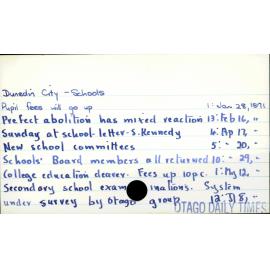 Dunedin City - Schools
Pupil fees will go up 1: Jan 28, 1971
Prefect abolition has mixed reaction 13: Feb 16, "
Sunday at school - letter - S. Kennedy 4: Ap 17, "
New school committees 5: " 20, "
Schools' Board members all returned 10: " 29, "
College education dearer. Fees up 10pc. 1: My 12, "
Secondary school examinations. System
under survey by Otago group 12: Jl 8, "
OTAGO DAILY TIMES